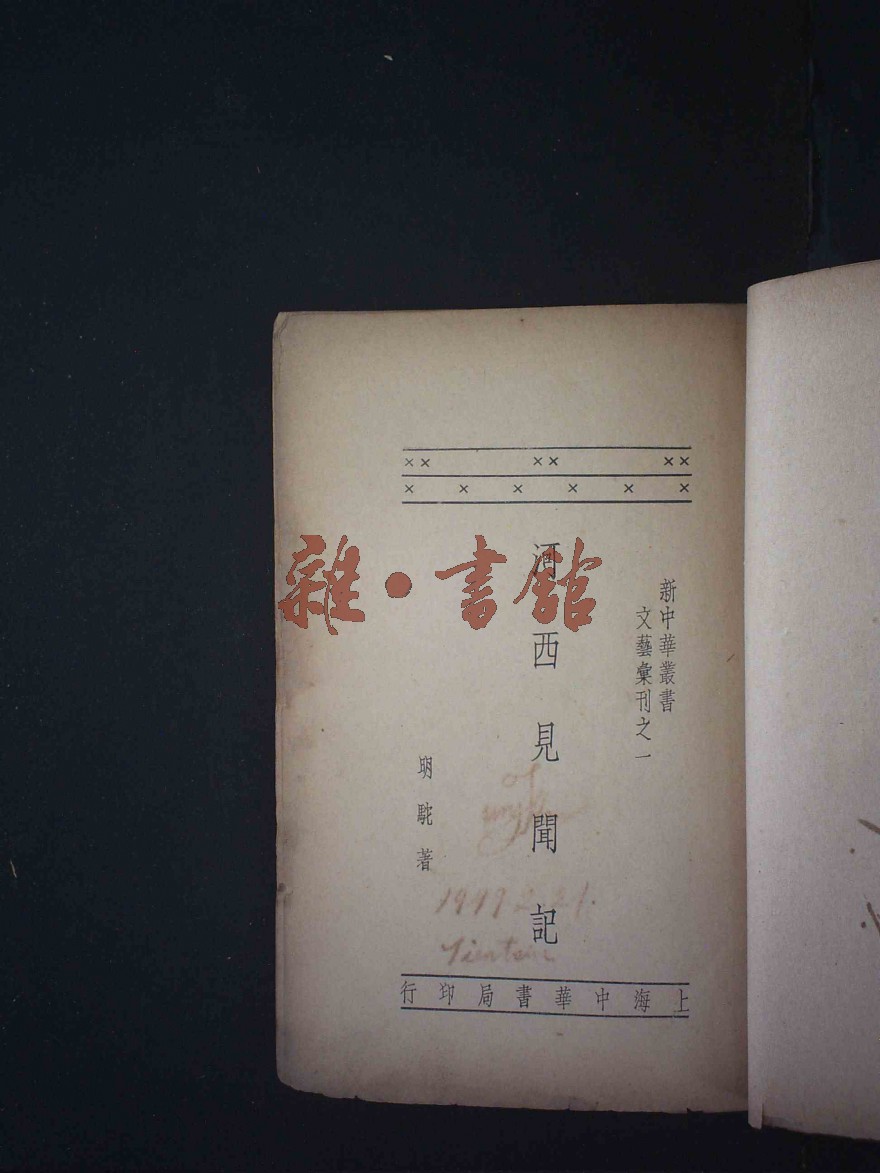 新中華叢書
文藝彙刊之一
河西見聞記
明駝著
上海中華書局印行
雜·書館
of
Tientsin